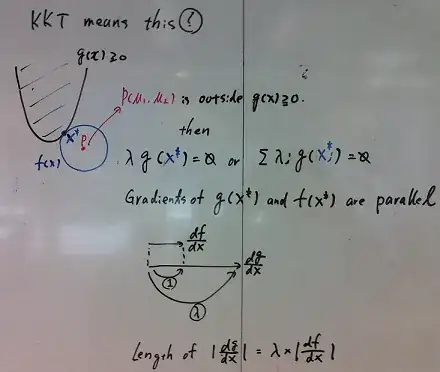 KKT means this ?
g(x)≥0
P(μ₁, μ₂) is outside g(x)≥0.
x*
P
f(x)
then
λ g(x*)=0 or Σ λᵢ g(xᵢ*)=0
Gradients of g(x*) and f(x*) are parallel
df/dx
dg/dx
1
λ
Length of |dg/dx| = λ × |df/dx|